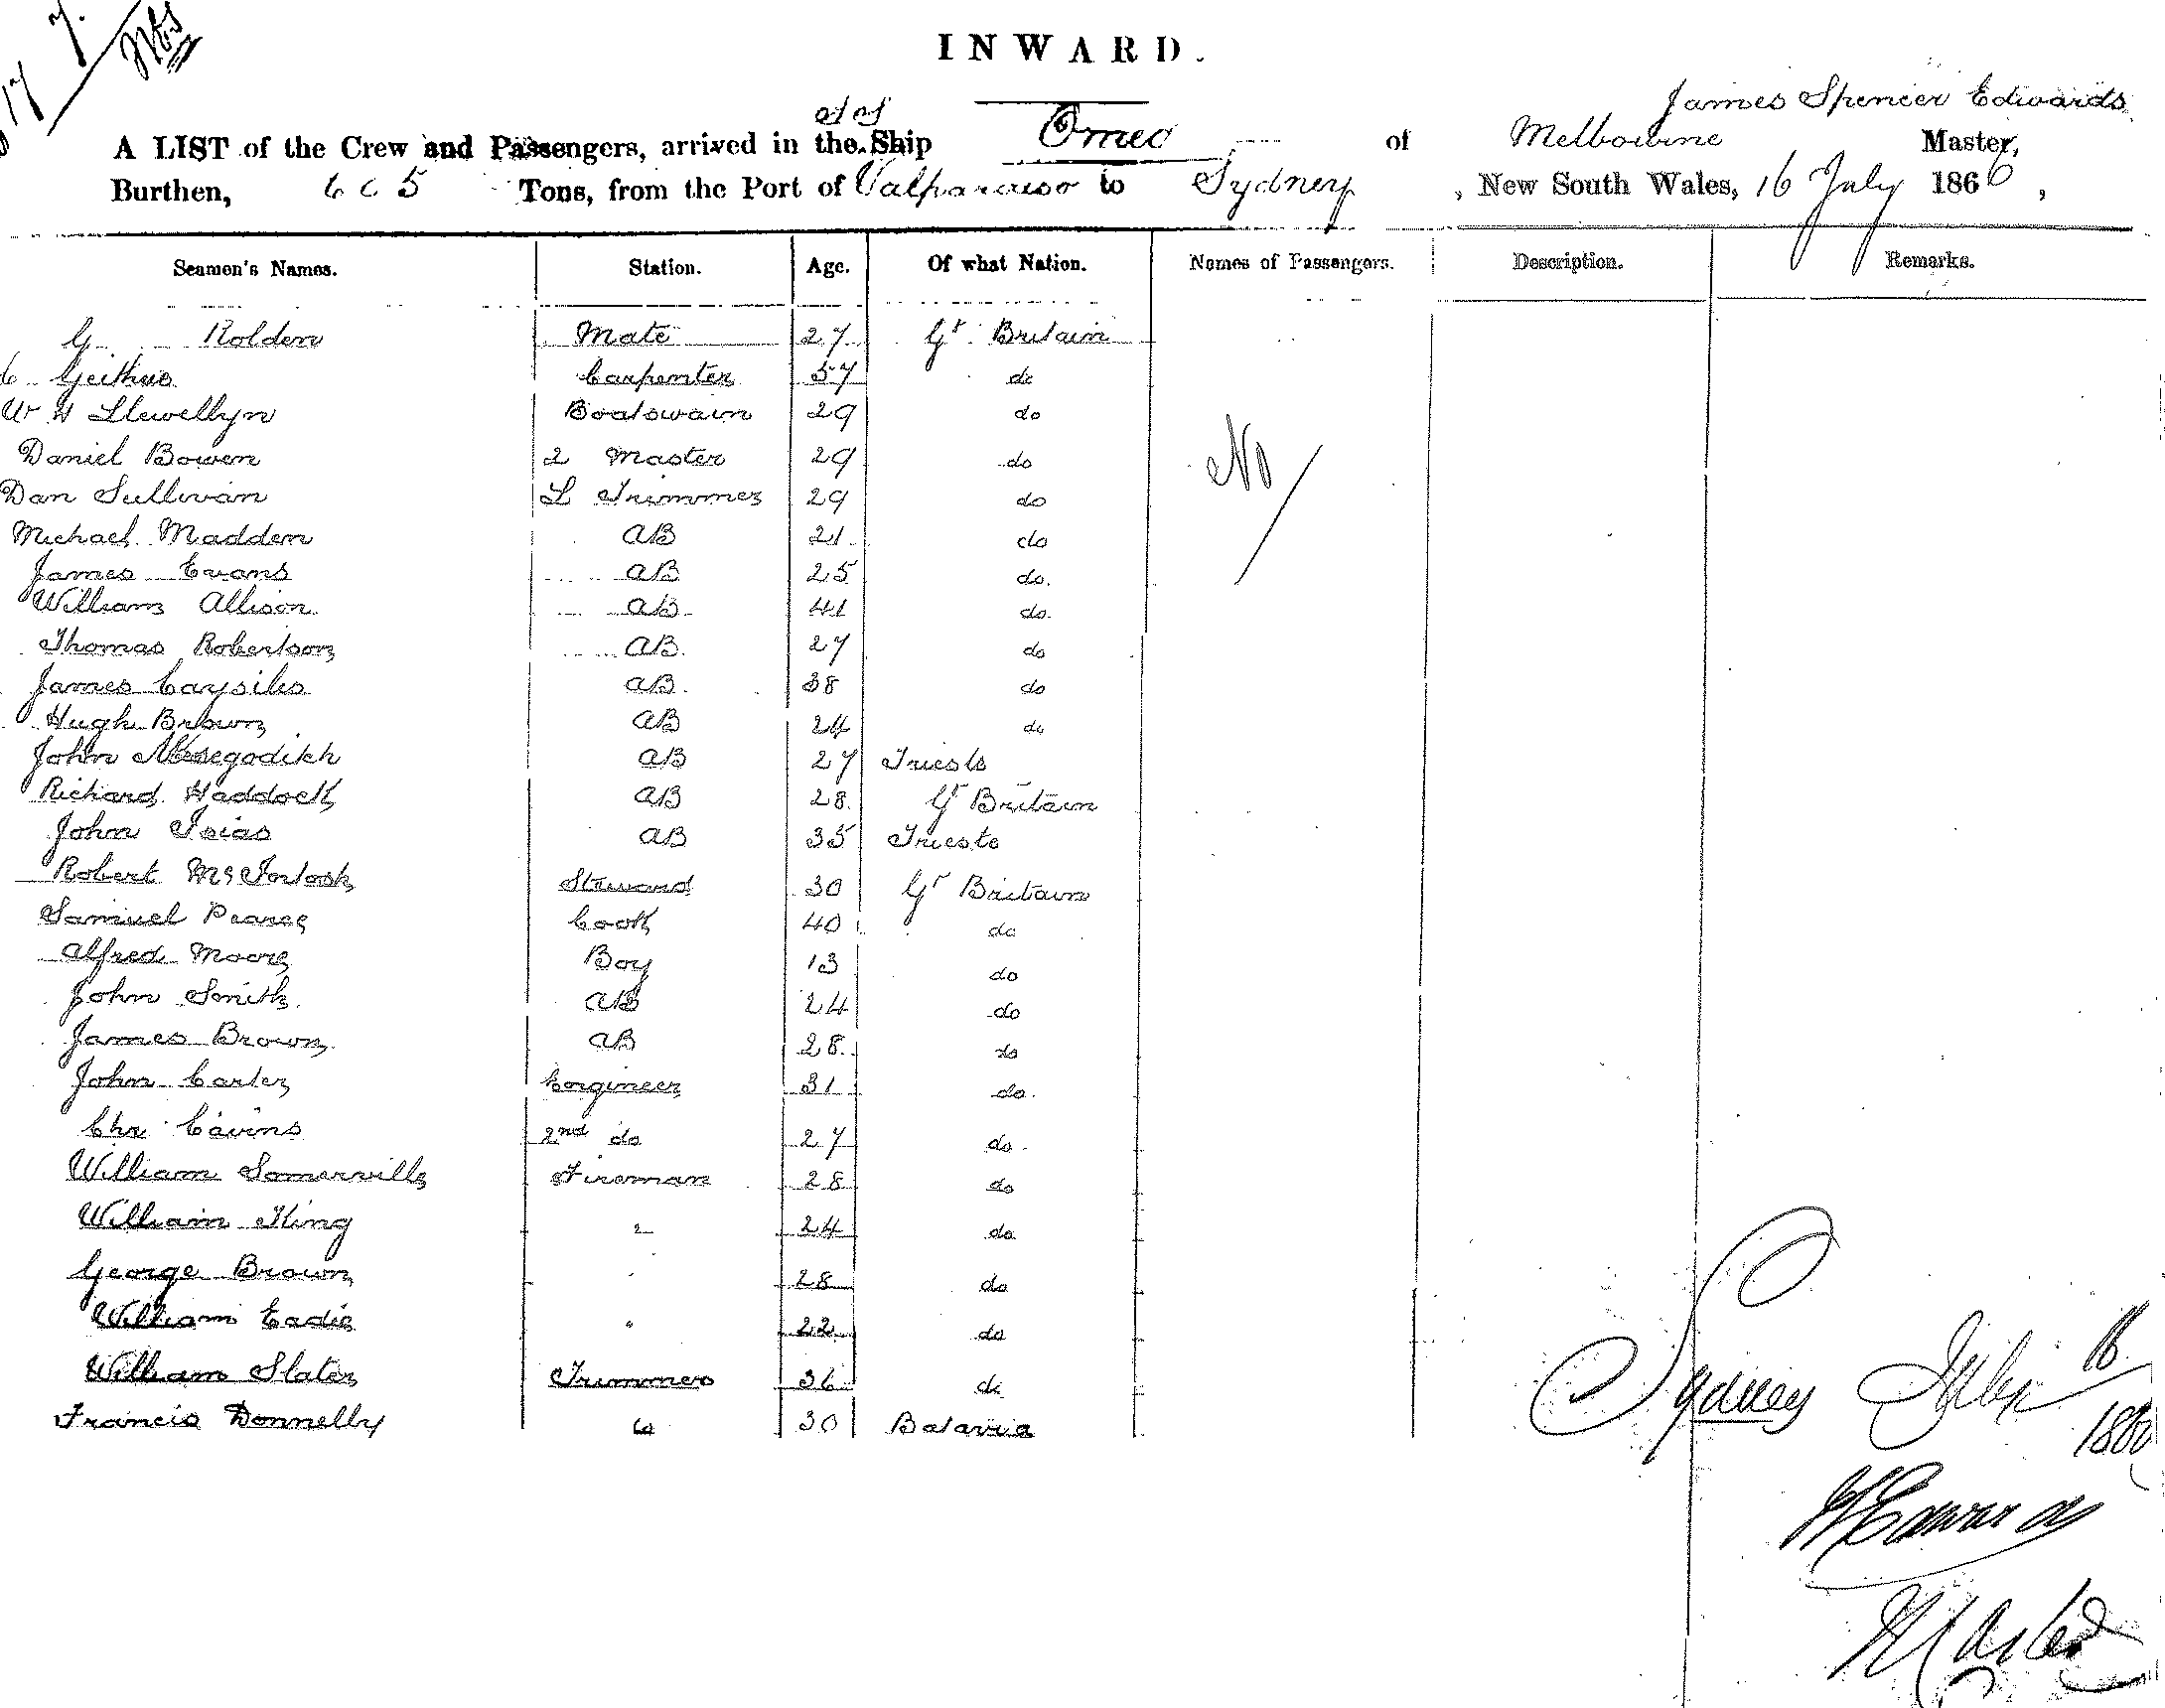 17 7.
INWARD.
James Spencer Edwards
A LIST of the Crew and Passengers, arrived in the Ship SS Omeo of Melbourne Master,
Burthen, 605 Tons, from the Port of Valparaiso to Sydney, New South Wales, 16 July 1866,
Seamen's Names. Station. Age. Of what Nation. Names of Passengers. Description. Remarks.
G Rolden Mate 27 Gt Britain
C Geithus Carpenter 57 do
W H Llewellyn Boatswain 29 do
Daniel Bowen 2 Master 29 do
No
Dan Sullivan L Trimmer 29 do
Michael Madden AB 21 do
James Evans AB 25 do.
William Allison AB 41 do.
Thomas Robertson AB. 27 do
James AB. 38 do
Hugh Brown AB 24 do
John AB 27 Trieste
Richard Haddock AB 28. Gt Britain
John Isias AB 35 Trieste
Robert Steward 30 Gt Britain
Samuel Pearce Cook 40 do
Alfred Moore Boy 13 do
John Smith AB 24 do
James Brown AB 28. do
John Carter Engineer 31 do.
Chr Cavins 2nd do 27 do.
William Somerville Fireman 28 do
William King " 24 do
George Brown " 28 do
William Eadie " 22 do
William Slater Trimmer 36 do
Francis Donnelly do 30 Batavia
Sydney July 16
1866
Edwards
Master